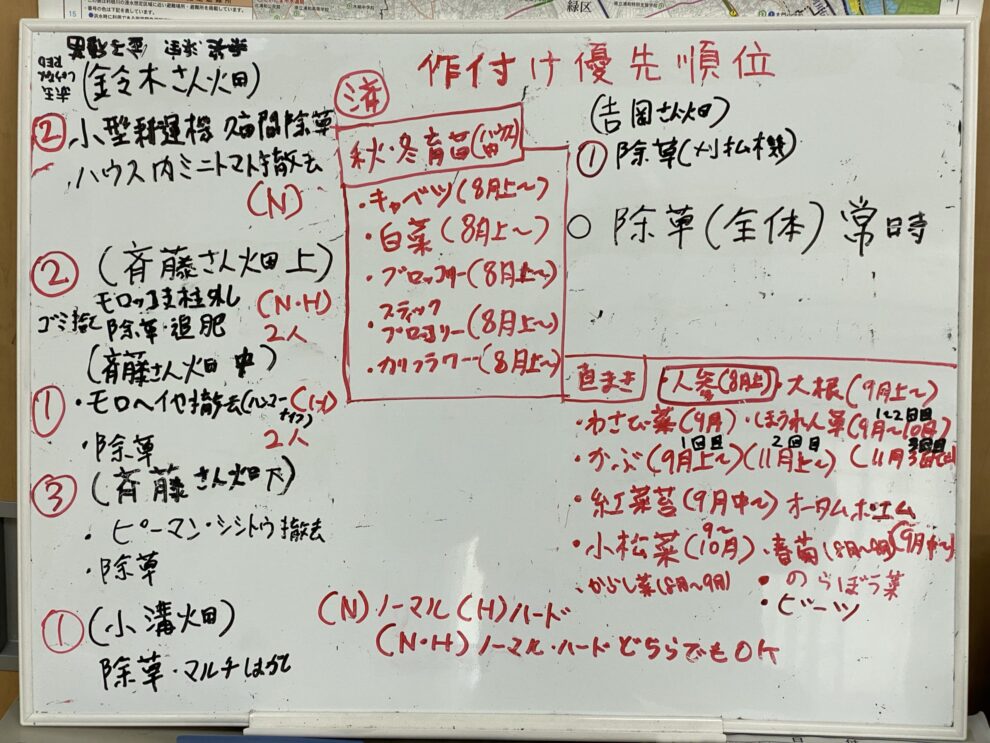 作付け優先順位
(鈴木さん畑)
② 小型耕運機 除草
ハウス内ミニトマト撤去
(N)
② (斉藤さん畑上)
モロッコ支柱外し (N・H)
ゴミ捨て 除草・追肥 2人
(斉藤さん畑 中)
① ・モロヘイヤ撤去 (H)
・除草 2人
③ (斉藤さん畑下)
・ピーマン・シシトウ撤去
・除草
① (小溝畑)
除草・マルチはがし
済
秋・冬育苗(ハウス)
・キャベツ(8月上〜)
・白菜(8月上〜)
・ブロッコリー(8月上〜)
・スティック
ブロッコリー(8月上〜)
・カリフラワー(8月上〜)
(吉岡さん畑)
① 除草(刈払機)
○ 除草(全体)常時
直まき 人参(8月上) 大根(9月上〜)
・わさび菜(9月)・ほうれん草(9月〜10月) 1〜2回目
・かぶ(9月上〜)(11月上〜) 1回目 2回目 3回目
・紅菜苔(9月中〜) オータムポエム
・小松菜(9〜10月)・春菊(8月〜9月)(9月中〜)
・からし菜(8月〜9月) ・のらぼう菜
・ビーツ
(N)ノーマル (H)ハード
(N・H)ノーマル・ハードどちらでもOK
緑区
15